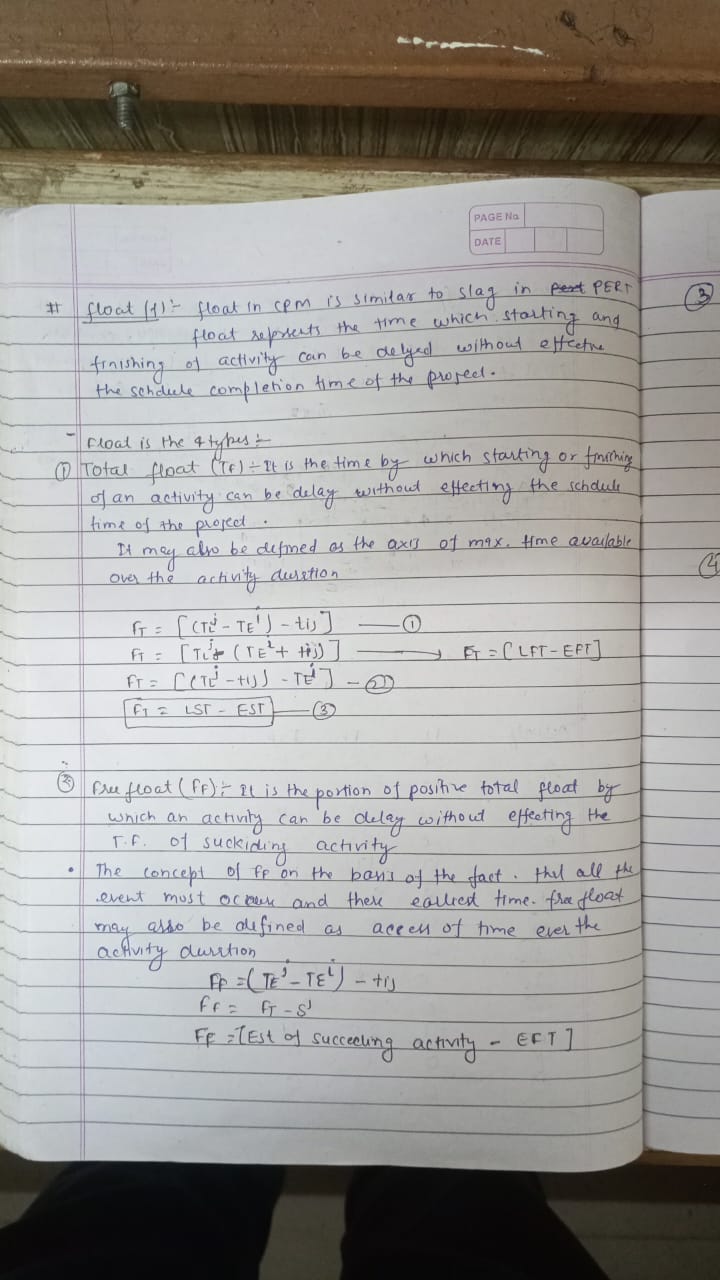 PAGE No
DATE
# float (f) :- float in CPM is similar to slag in PERT
float represents the time which starting and
finishing of activity can be delyed without effective
the schdule completion time of the project.
- Float is the 4 types :-
① Total float (TF) :- It is the time by which starting or finishing
of an activity can be delay without effecting the schdule
time of the project.
It may also be defined as the axis of max. time available
over the activity duration
FT = [(TLʲ - TEⁱ) - tij] —— ①
FT = [TLʲ - (TEⁱ + tij)] ——→ FT = [LFT - EFT]
FT = [(TLʲ - tij) - TEⁱ] - ②
FT = LST - EST —— ③
② free float (FF) :- It is the portion of positive total float by
which an activity can be delay without effecting the
T.F. of suckiding activity
• The concept of FF on the basis of the fact. that all the
event most occur and there earlied time. free float
may also be defined as access of time over the
activity duration
FF = (TEʲ - TEⁱ) - tij
FF = FT - Sʲ
FF = [Est of succeeding activity - EFT]
③
④